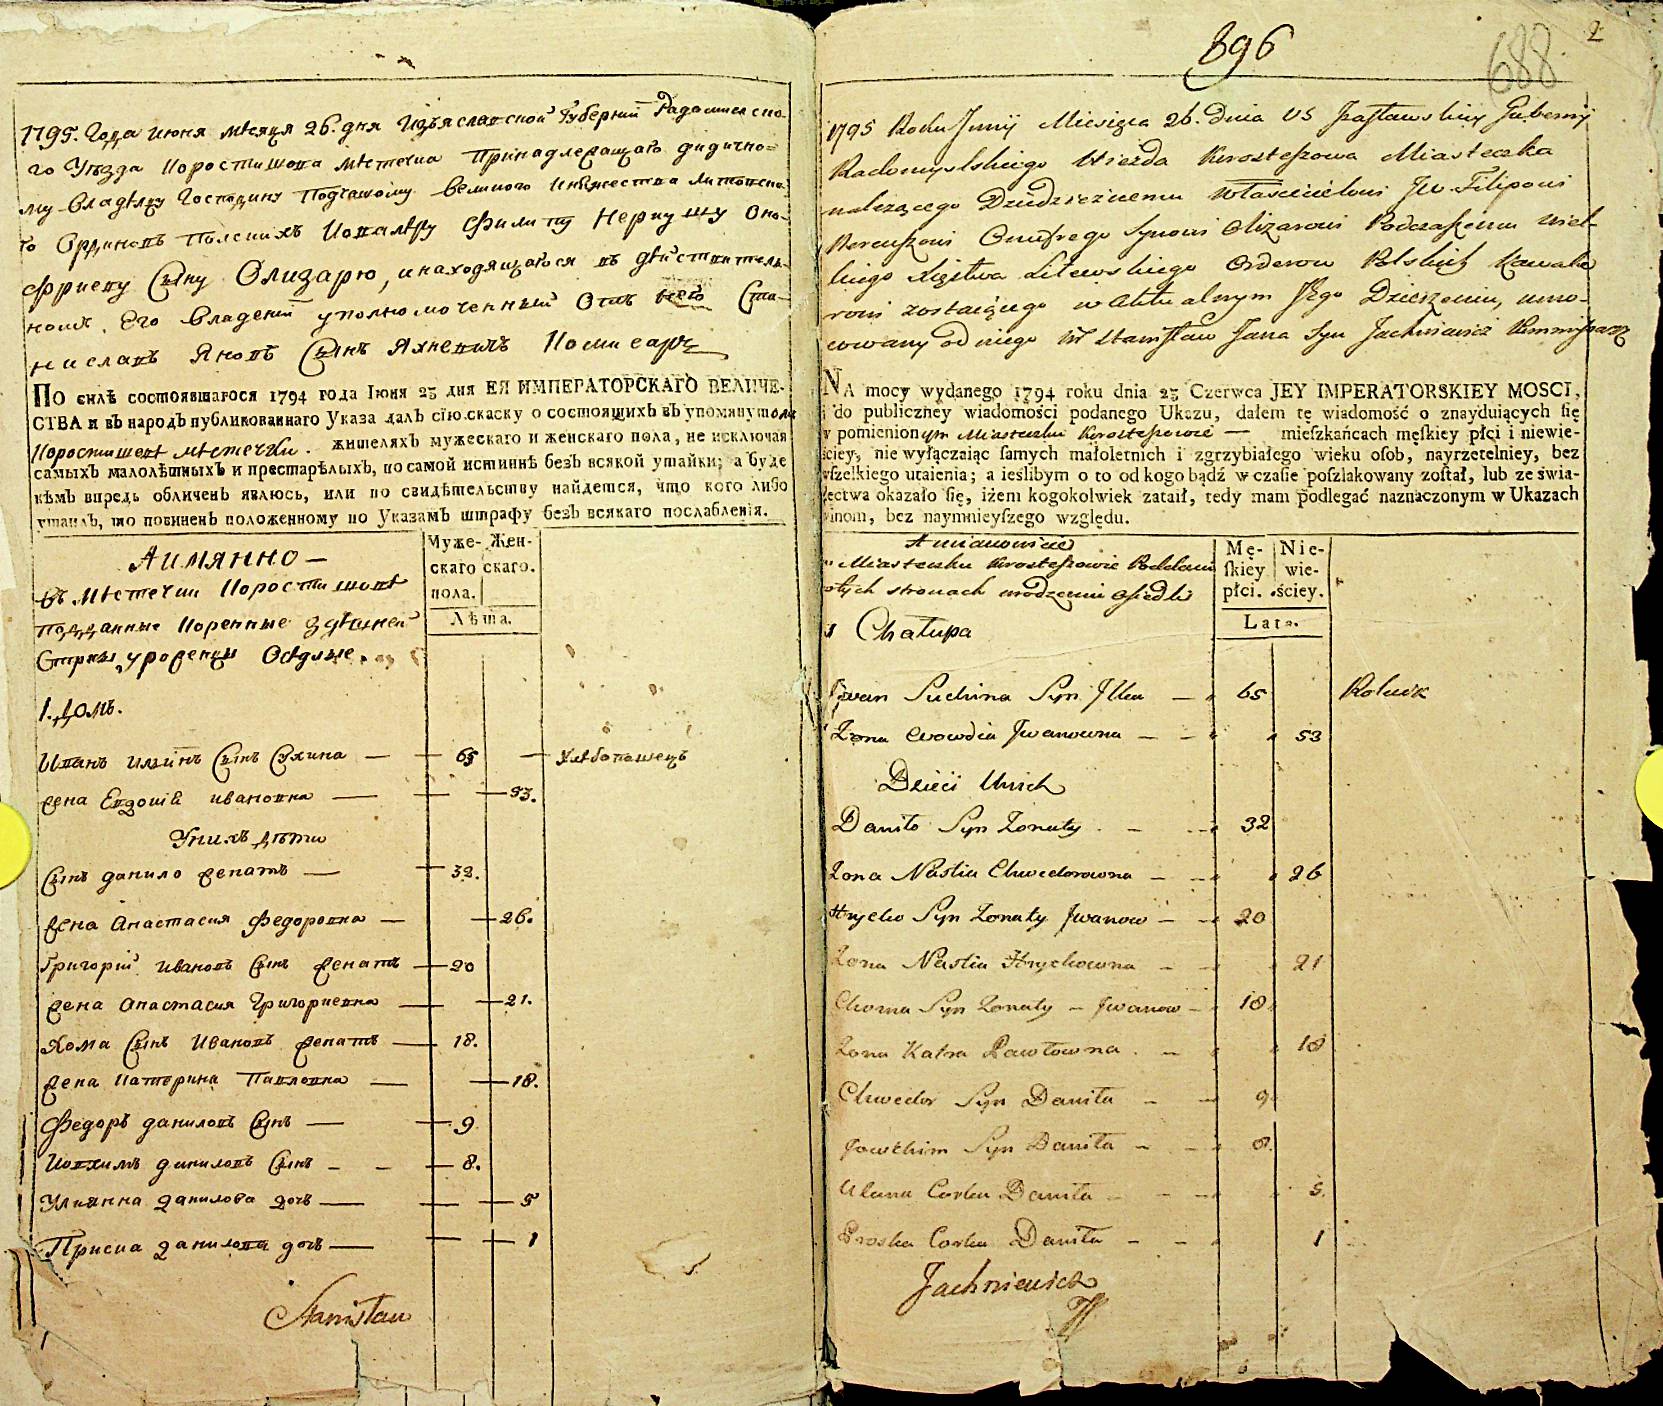 1795. Года июня мѣсяца 26. дня Изъяславской Губернии Радомислско-
го Уѣзда Коростишова мѣстечка Принадлежащаго дидично-
му владѣлцу Господину Подчашому великого Княжества Литовско-
го Ординовъ Полскихъ Ковалѣру Филипу Неркушу Оно-
фриеву Сыну Олизарю, инаходящагося въ дѣйствитель-
номъ Его владении уполномоченный Отъ него Ста-
ниславъ Яновъ Сынъ Яхневичъ Комисаръ
По силѣ состоявшагося 1794 года Іюня 23 дня ЕЯ ИМПЕРАТОРСКАГО ВЕЛИЧЕ-
СТВА и въ народъ публикованнаго Указа далъ сію скаску о состоящихъ въ упомянутомъ
Коростишовѣ мѣстечки. жителяхъ мужескаго и женскаго пола, не исключая
самыхъ малолѣтныхъ и престарѣлыхъ, по самой истиннѣ безъ всякой утайки; а буде
кѣмъ впредь обличенъ явлюсь, или по свидѣтельству найдется, что кого либо
утаилъ, то повиненъ положенному по Указамъ штрафу безъ всякаго послабленія.
Аимянно —
въ Мѣстечки Коростишовѣ
подданные Коренные здѣшней
Страны уроженцы Осѣдлые.
Муже- Жен-
скаго скаго.
пола.
Лѣта.
1. Домъ.
Иванъ Илинъ Сынъ Сухина — 65 — хлѣбопашецъ
жена Евдокия ивановна — 53.
Унихъ дѣти
Сынъ данило женатъ — 32.
жена Анастасия Федоровна — 26.
Григорий Ивановъ Сынъ женатъ — 20
жена Анастасия Григориевна — 21.
Хома Сынъ Ивановъ женатъ — 18.
жена Катерина Павловна — 18.
Федоръ даниловъ Сынъ — 9
Иовхимъ даниловъ Сынъ — 8.
Улианна данилова дочъ — 5
Приска данилова дочъ — 1
Stanisław
896
688
2
1795 Roku Junij Miesiąca 26. dnia US Jzasławskiey Gubernij
Radomyslskiego Uiezda Korosteszowa Miasteczka
należącego Dziedzicznemu Włascicielowi Jw Filipowi
Nereuszowi Onufrego Synowi Olizarowi Podczaszemu Wiel-
kiego Xięztwa Litewskiego Orderow Polskich Kawale
rowi zostaiącego w Aktualnym Jego Dzierzeniu, umo-
cowany od niego W Stanisław Jana Syn Jachniewicz Kommissarz
NA mocy wydanego 1794 roku dnia 23 Czerwca JEY IMPERATORSKIEY MOSCI,
i do publiczney wiadomości podanego Ukazu, dałem tę wiadomość o znayduiących ſię
w pomienionym Miasteczku Korosteszowie — mieſzkańcach męſkiey płci i niewie-
ściey, nie wyłączaiąc ſamych małoletnich i zgrzybiałego wieku oſob, nayrzetelniey, bez
wſzelkiego utaienia; a ieślibym o to od kogo bądź w czaſie poſzlakowany zoſtał, lub ze świa-
dectwa okazało ſię, iżem kogokolwiek zataił, tedy mam podlegać naznaczonym w Ukazach
winom, bez naymnieyſzego względu.
A mianowicie
w Miasteczku Korosteszowie Poddani
w tych stronach urodzeni osiedli
Mę- Nie-
ſkiey wie-
płci. ściey.
Lata.
1 Chałupa
Jwan Suchina Syn Jlka — 65 Rolnik
Żona Owowdia Jwanowna — 53
Dzieci Unich
Daniło Syn Żonaty — 32
Żona Nastia Chwedorowna — 26
Hryćko Syn Żonaty Jwanow — 20
Żona Nastia Hryćkowna — 21
Choma Syn Żonaty — Jwanow — 18
Żona Katra Pawłowna — 18
Chwedor Syn Daniła — 9
Jowchim Syn Daniła — 8.
Ulana Corka Daniła — 5.
Proska Corka Daniła — 1
Jachniewicz